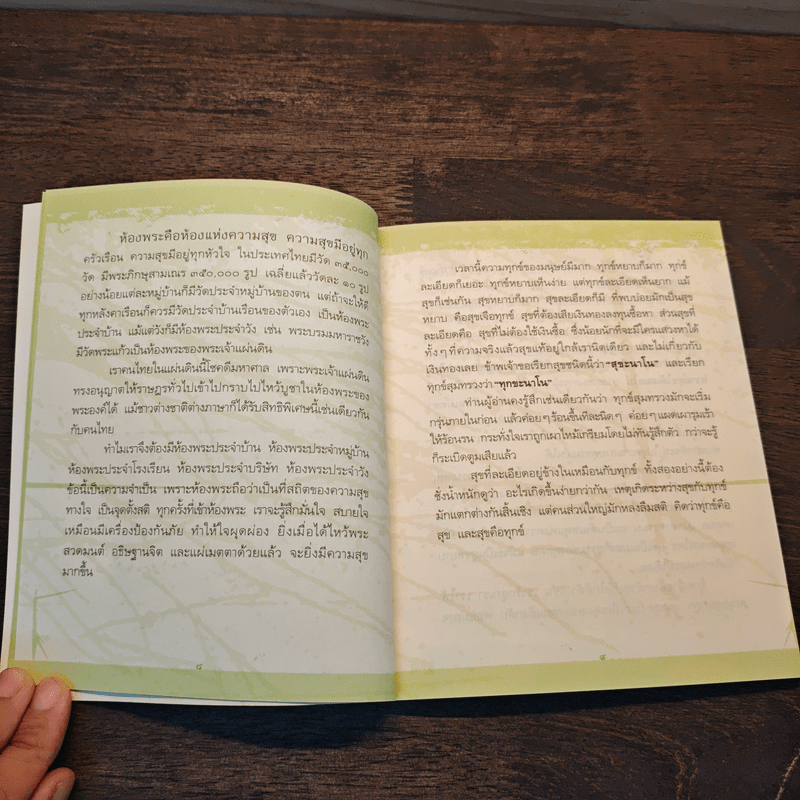 ห้องพระคือห้องแห่งความสุข ความสุขมีอยู่ทุก
ครัวเรือน ความสุขมีอยู่ทุกหัวใจ ในประเทศไทยมีวัด ๓๕,๐๐๐
วัด มีพระภิกษุสามเณร ๓๕๐,๐๐๐ รูป เฉลี่ยแล้ววัดละ ๑๐ รูป
อย่างน้อยแต่ละหมู่บ้านก็มีวัดประจำหมู่บ้านของตน แต่ถ้าจะให้ดี
ทุกหลังคาเรือนก็ควรมีวัดประจำบ้านเรือนของตัวเอง เป็นห้องพระ
ประจำบ้าน แม้แต่วังก็มีห้องพระประจำวัง เช่น พระบรมมหาราชวัง
มีวัดพระแก้วเป็นห้องพระของพระเจ้าแผ่นดิน
เราคนไทยในแผ่นดินนี้โชคดีมหาศาล เพราะพระเจ้าแผ่นดิน
ทรงอนุญาตให้ราษฎรทั่วไปเข้าไปกราบไปไหว้บูชาในห้องพระของ
พระองค์ได้ แม้ชาวต่างชาติต่างภาษาก็ได้รับสิทธิพิเศษนี้เช่นเดียวกัน
กับคนไทย
ทำไมเราจึงต้องมีห้องพระประจำบ้าน ห้องพระประจำหมู่บ้าน
ห้องพระประจำโรงเรียน ห้องพระประจำบริษัท ห้องพระประจำวัง
ข้อนี้เป็นความจำเป็น เพราะห้องพระถือว่าเป็นที่สถิตของความสุข
ทางใจ เป็นจุดตั้งสติ ทุกครั้งที่เข้าห้องพระ เราจะรู้สึกมั่นใจ สบายใจ
เหมือนมีเครื่องป้องกันภัย ทำให้ใจผุดผ่อง ยิ่งเมื่อได้ไหว้พระ
สวดมนต์ อธิษฐานจิต และแผ่เมตตาด้วยแล้ว จะยิ่งมีความสุข
มากขึ้น
๘
เวลานี้ความทุกข์ของมนุษย์มีมาก ทุกข์หยาบก็มาก ทุกข์
ละเอียดก็เยอะ ทุกข์หยาบเห็นง่าย แต่ทุกข์ละเอียดเห็นยาก แม้
สุขก็เช่นกัน สุขหยาบก็มาก สุขละเอียดก็มี ที่พบบ่อยมักเป็นสุข
หยาบ คือสุขเจือทุกข์ สุขที่ต้องเสียเงินทองลงทุนซื้อหา ส่วนสุขที่
ละเอียดคือ สุขที่ไม่ต้องใช้เงินซื้อ ซึ่งน้อยนักที่จะมีใครแสวงหาได้
ทั้งๆ ที่ความจริงแล้วสุขแท้อยู่ใกล้เรานิดเดียว และไม่เกี่ยวกับ
เงินทองเลย ข้าพเจ้าขอเรียกสุขชนิดนี้ว่า "สุขะนาโน" และเรียก
ทุกข์สุมทรวงว่า "ทุกขะนาโน"
ท่านผู้อ่านคงรู้สึกเช่นเดียวกันว่า ทุกข์สุมทรวงมักจะเริ่ม
กรุ่นภายในก่อน แล้วค่อยๆ ร้อนขึ้นทีละนิดๆ ค่อยๆ แผดเผารุมเร้า
ให้ร้อนรน กระทั่งใจเราถูกเผาไหม้เกรียมโดยไม่ทันรู้สึกตัว กว่าจะรู้
ก็ระเบิดตูมเสียแล้ว
สุขที่ละเอียดอยู่ข้างในเหมือนกับทุกข์ ทั้งสองอย่างนี้ต้อง
ชั่งน้ำหนักดูว่า อะไรเกิดขึ้นง่ายกว่ากัน เหตุเกิดระหว่างสุขกับทุกข์
มักแตกต่างกันสิ้นเชิง แต่คนส่วนใหญ่มักหลงลืมสติ คิดว่าทุกข์คือ
สุข และสุขคือทุกข์
๙